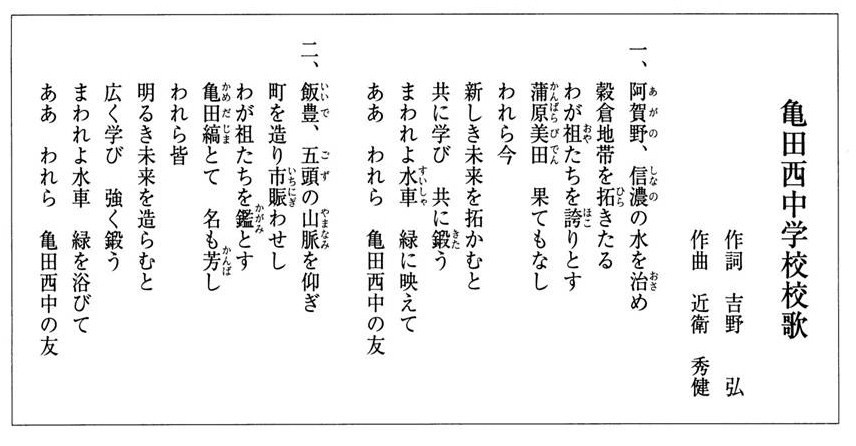 亀田西中学校校歌
作詞 吉野 弘
作曲 近衛 秀健
一、阿賀野、信濃の水を治め
穀倉地帯を拓きたる
わが祖たちを誇りとす
蒲原美田 果てもなし
われら今
新しき未来を拓かむと
共に学び 共に鍛う
まわれよ水車 緑に映えて
ああ われら 亀田西中の友
二、飯豊、五頭の山脈を仰ぎ
町を造り市賑わせし
わが祖たちを鑑とす
亀田縞とて 名も芳し
われら皆
明るき未来を造らむと
広く学び 強く鍛う
まわれよ水車 緑を浴びて
ああ われら 亀田西中の友